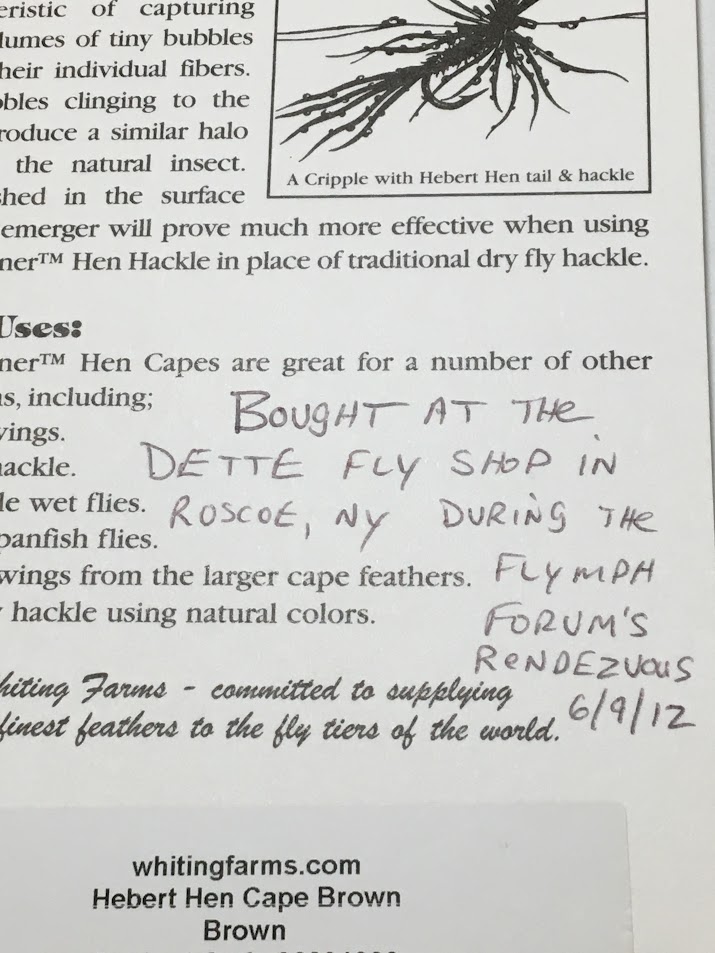 eristic of capturing
lumes of tiny bubbles
heir individual fibers.
bbles clinging to the
roduce a similar halo
the natural insect.
hed in the surface
A Cripple with Hebert Hen tail & hackle
emerger will prove much more effective when using
ner™ Hen Hackle in place of traditional dry fly hackle.
Uses:
ner™ Hen Capes are great for a number of other
s, including;
BOUGHT AT THE
vings.
DETTE FLY SHOP IN
ackle.
le wet flies.
ROSCOE, NY DURING THE
panfish flies.
wings from the larger cape feathers.
FLYMPH
hackle using natural colors.
FORUM'S
RENDEZVOUS
6/9/12
hiting Farms - committed to supplying
finest feathers to the fly tiers of the world.
whitingfarms.com
Hebert Hen Cape Brown
Brown